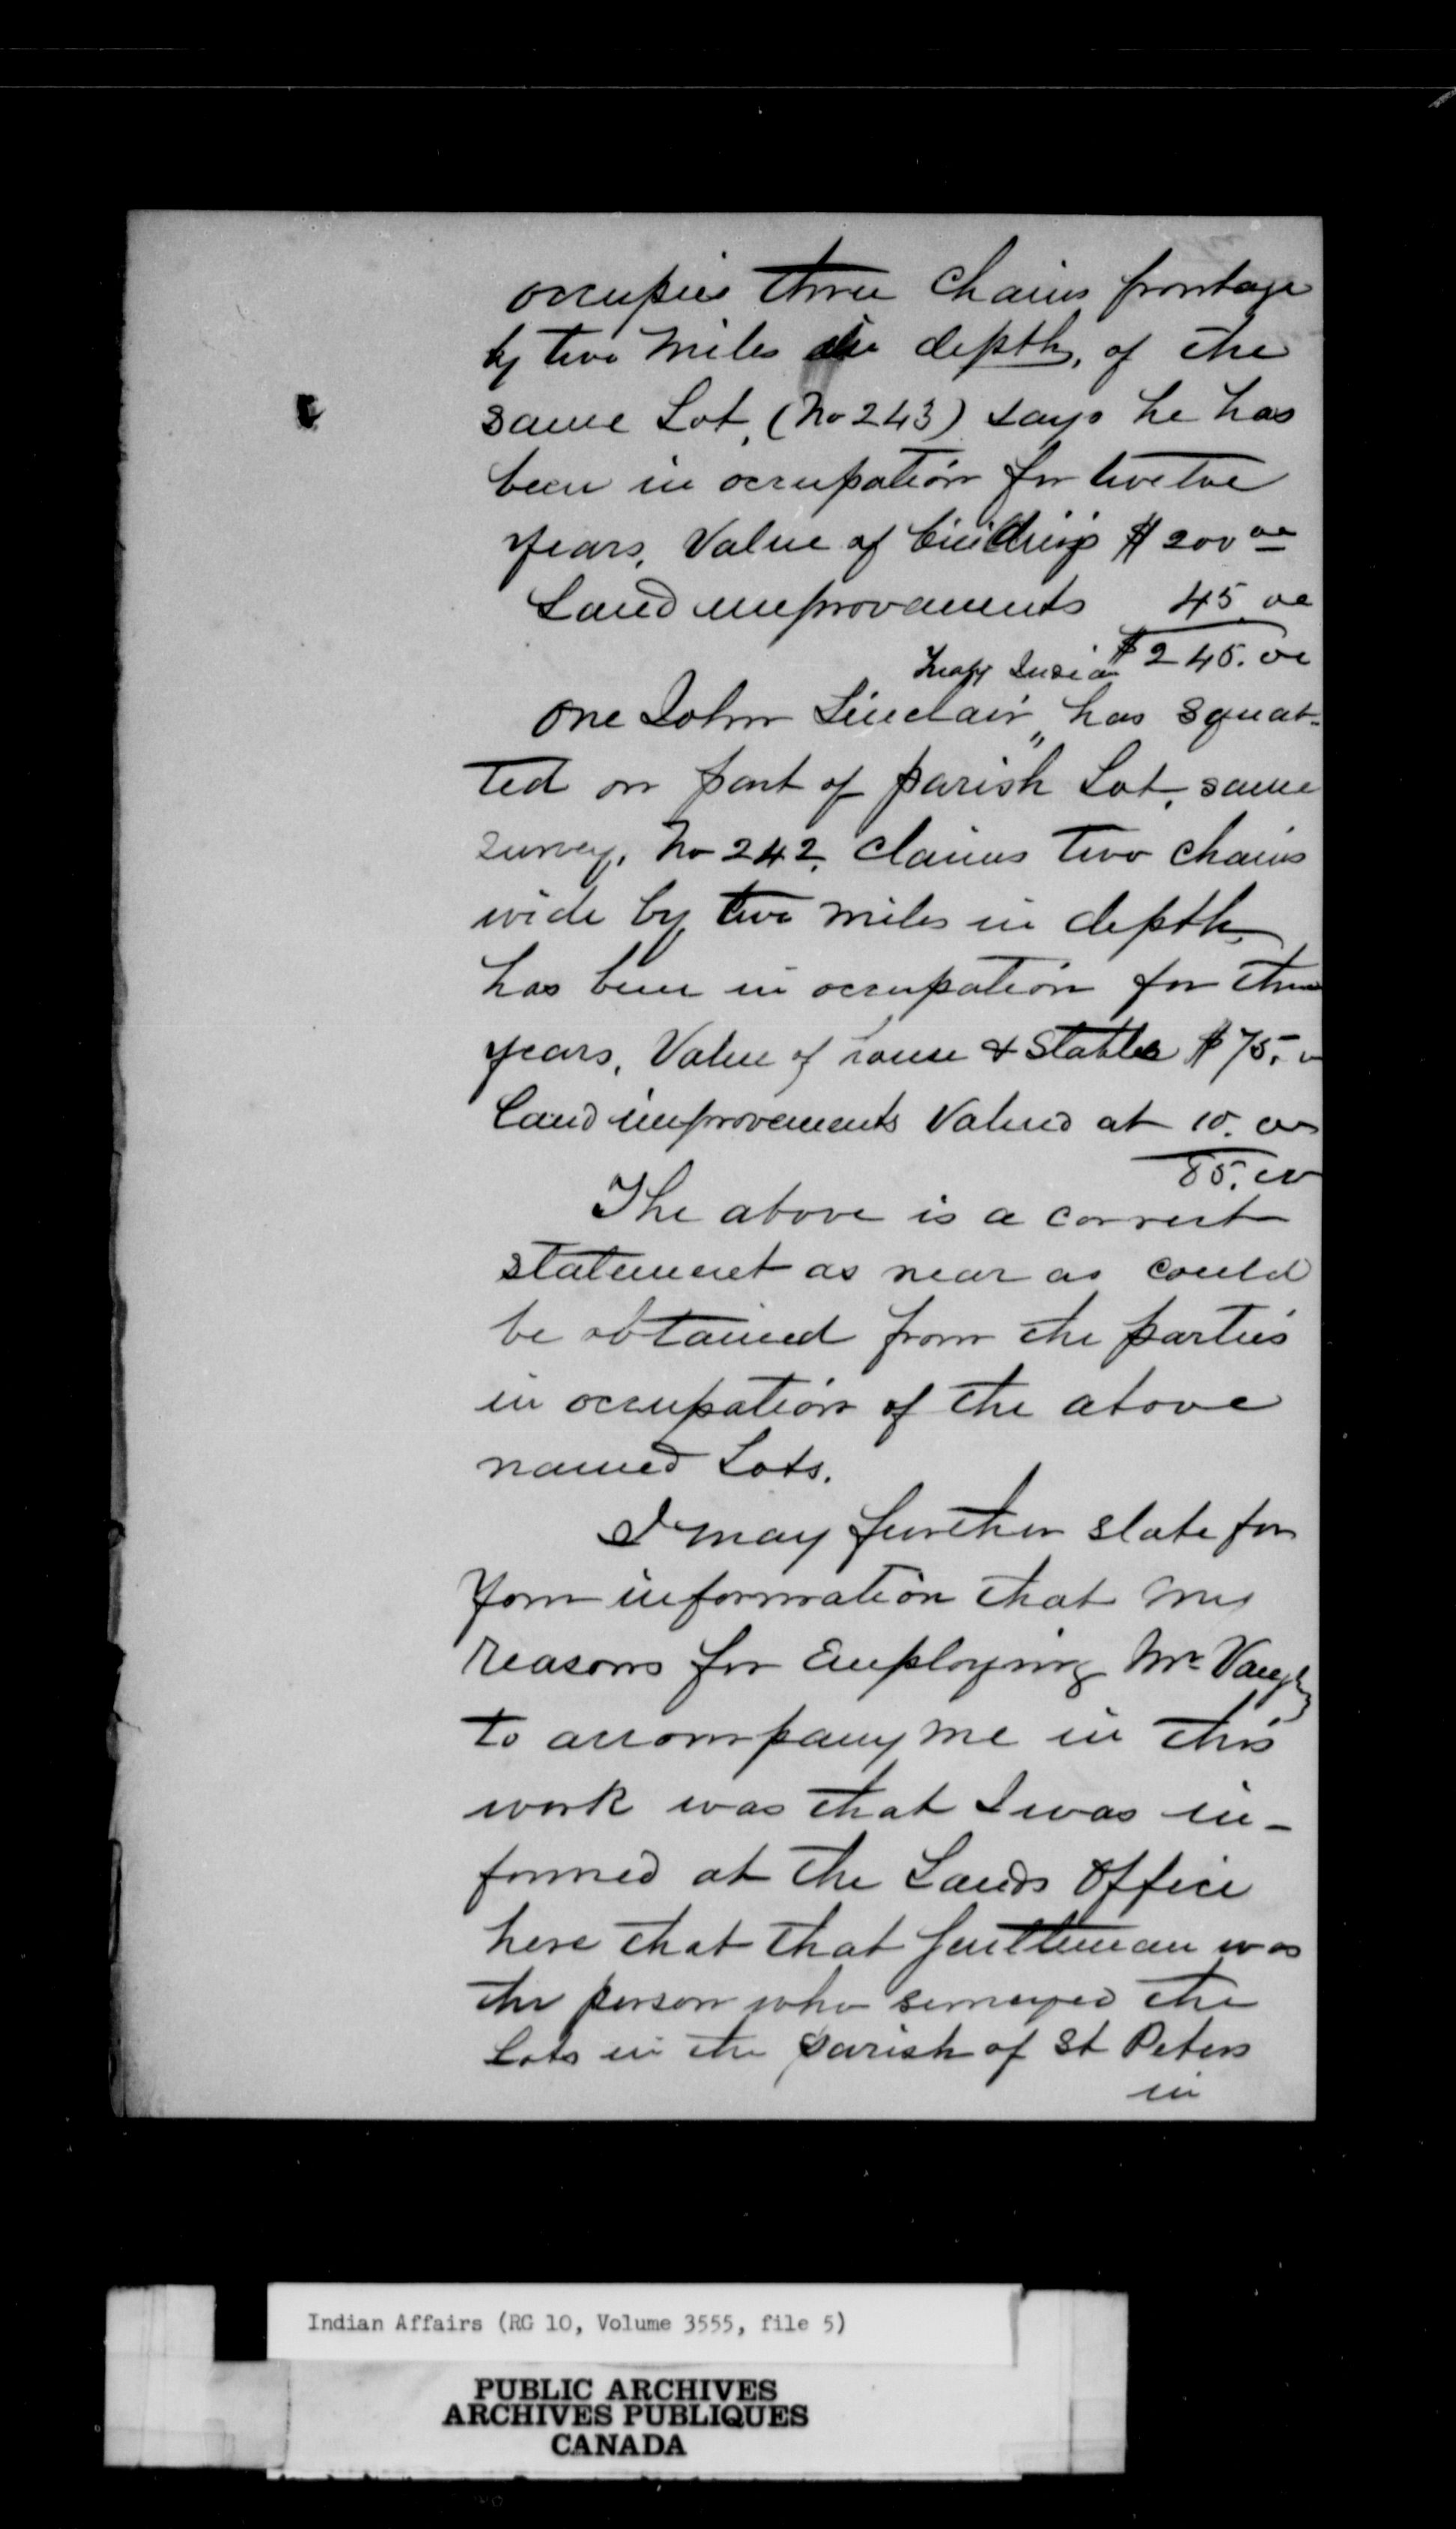 occupies three chains frontage
by two miles in depth, of the
same Lot, (No 243) says he has
been in occupation for twelve
years, Value of buildings $200 00
Land improvements 45.00
$245.00
Indian
one John Sinclair „ has squat-
ted on part of parish Lot, same
survey, No 242, claims two chains
wide by two miles in depth,
has been in occupation for three
years, Value of house & Stables $75.
Land improvements Valued at 10.00
85.00
The above is a correct
statement as near as could
be obtained from the parties
in occupation of the above
named Lots.
I may further state for
your information that my
reasons for Employing Mr Vaughn
to accompany me in this
work was that I was in-
formed at the Lands Office
here that that Gentleman was
the person who surveyed the
Lots in the parish of St Peters
in
Indian Affairs (RG 10, Volume 3555, file 5)
PUBLIC ARCHIVES
ARCHIVES PUBLIQUES
CANADA